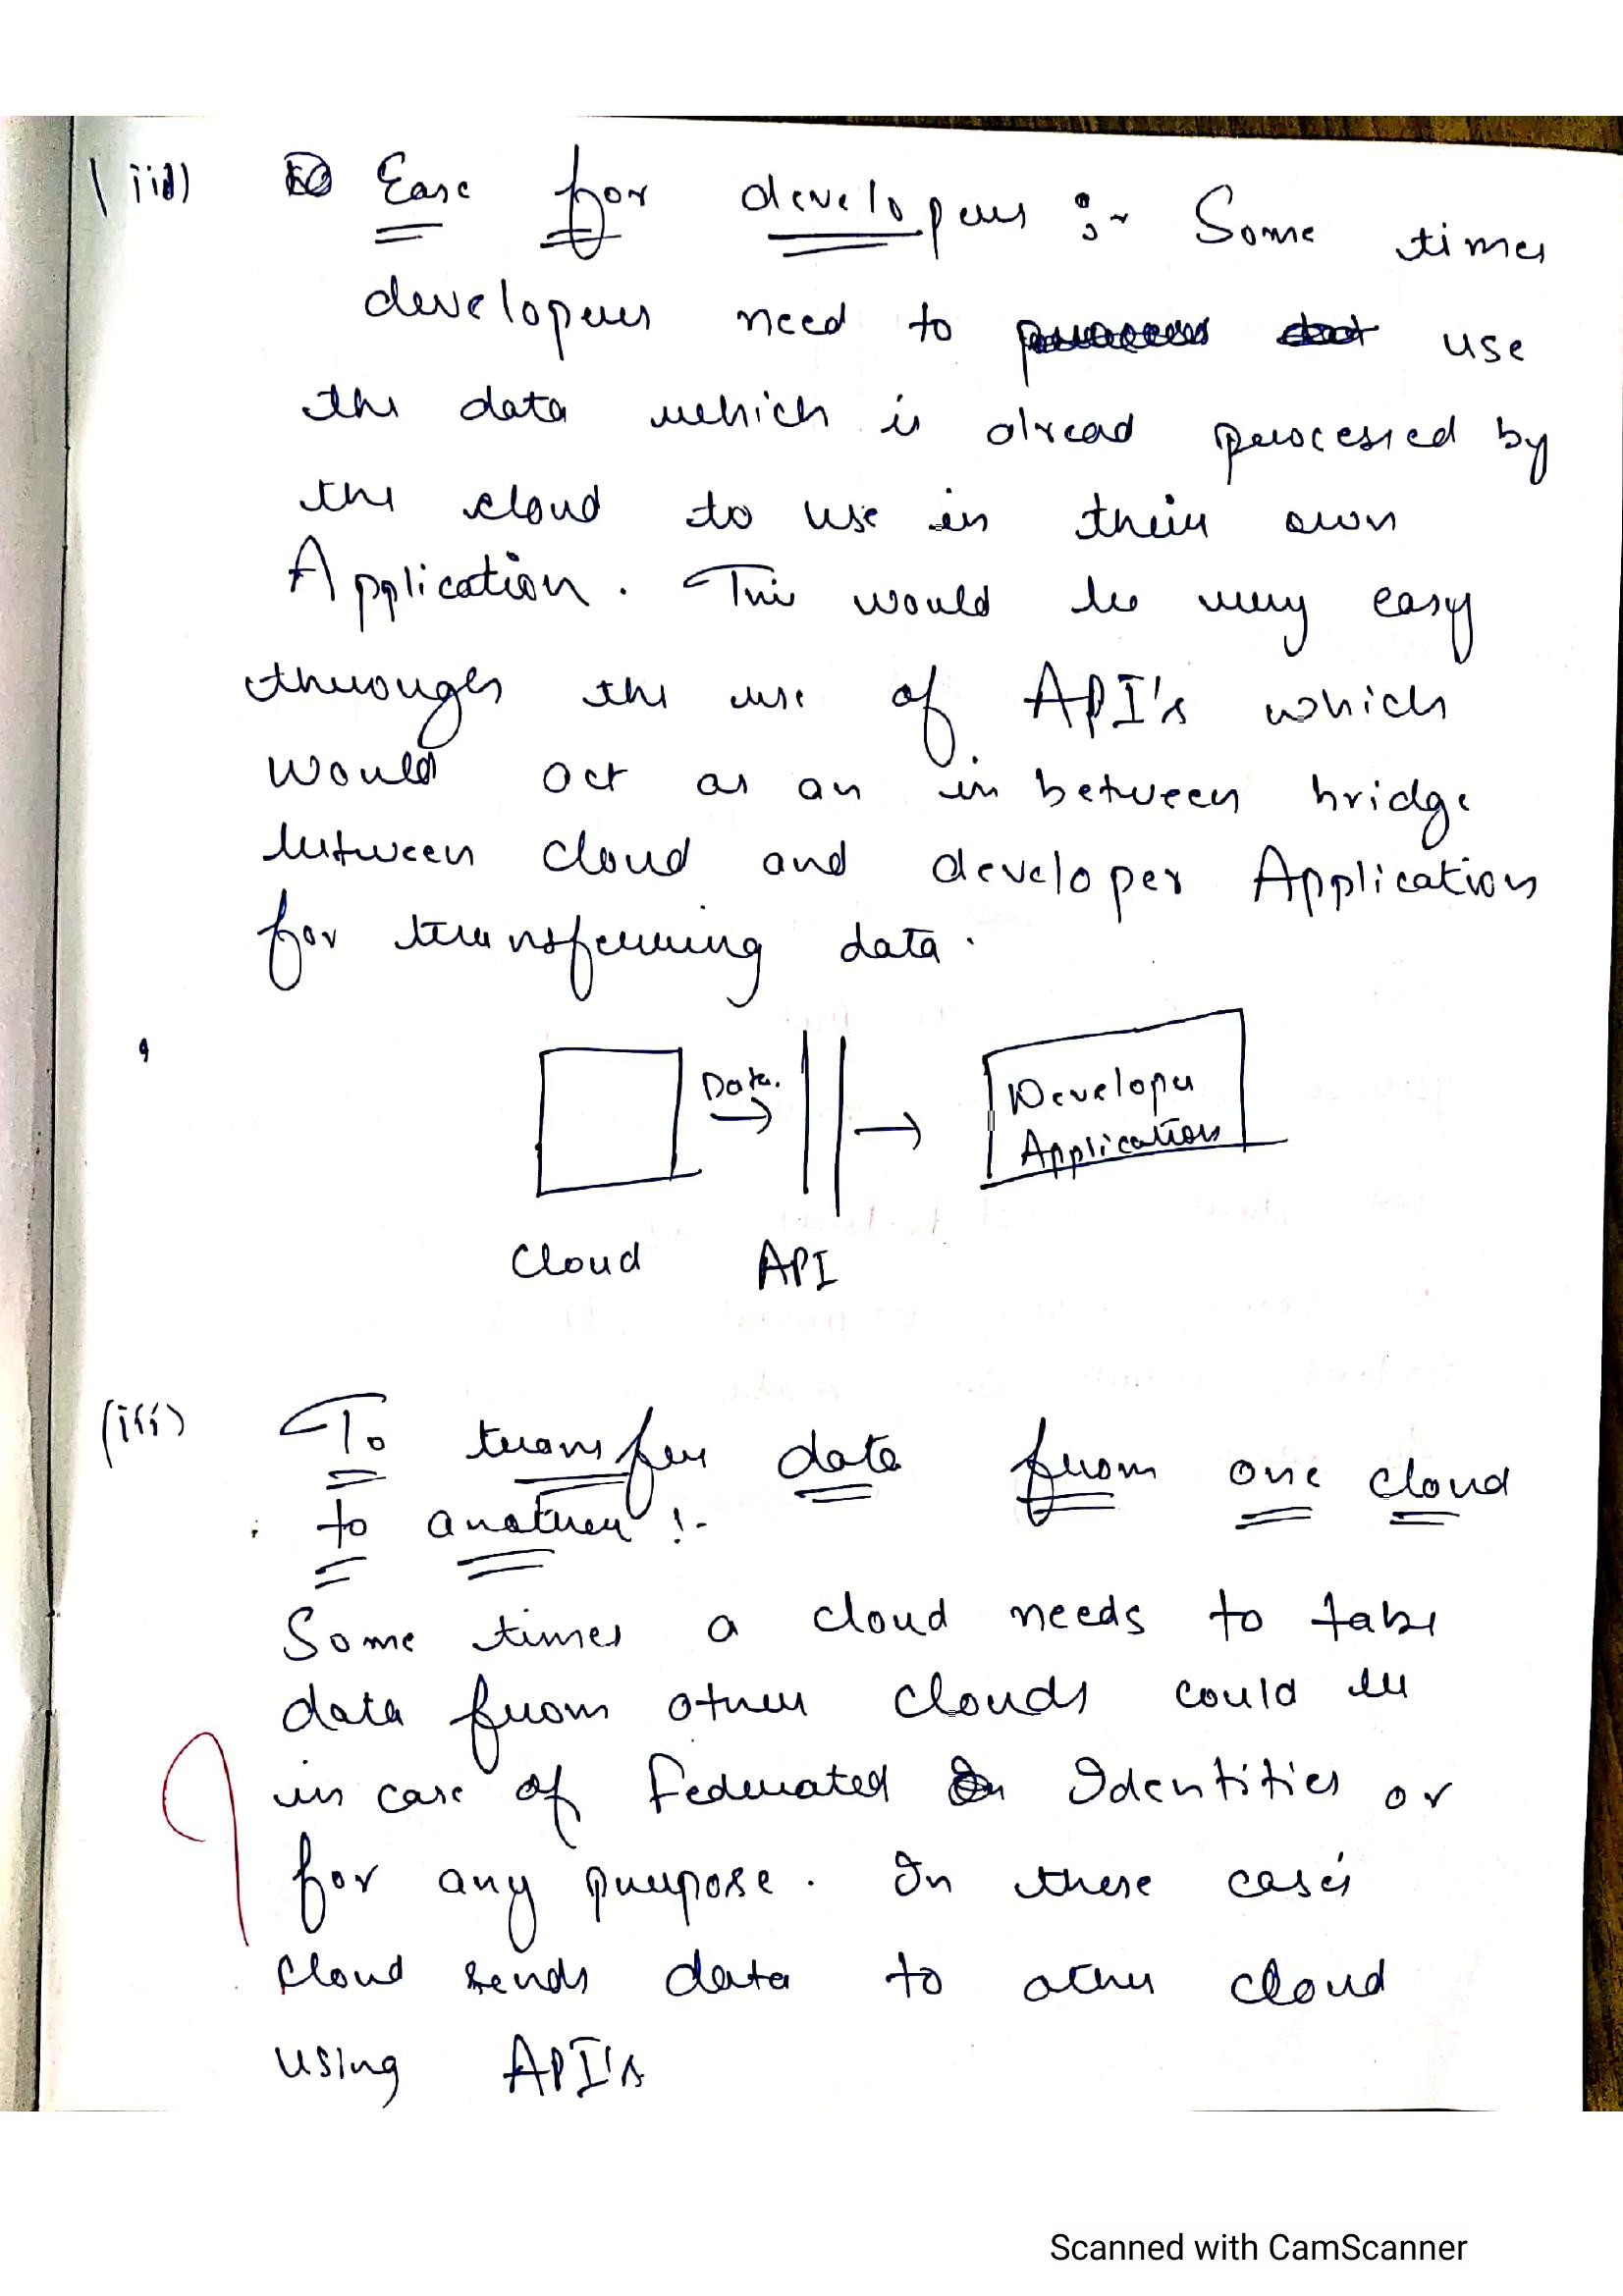 (iii) Ease for developers :- Some times
developers need to process dat use
the data which is alread processed by
the cloud to use in their own
Application. This would be very easy
through the use of API's which
would act as an in between bridge
between cloud and developer Application
for transferring data.
Data.
Developer
Application
Cloud API
(iii) To transfer data from one cloud
to another :-
Some times a cloud needs to take
data from other clouds could be
in case of Federated Identities or
for any purpose. In these cases
cloud sends data to other cloud
using API's
Scanned with CamScanner